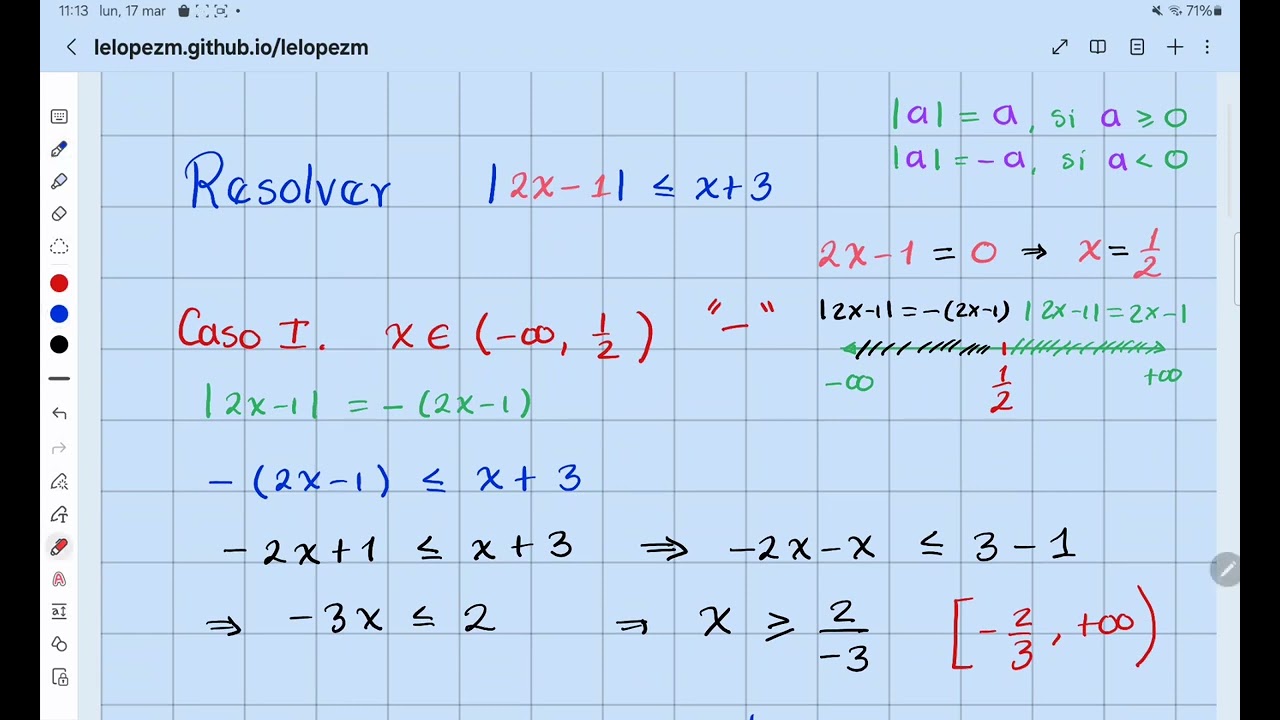 11:13 lun, 17 mar
71%
lelopezm.github.io/lelopezm
|a| = a, si a ≥ 0
|a| = -a, si a < 0
Resolver |2x-1| ≤ x+3
2x-1 = 0 ⇒ x = 1/2
Caso I. x ∈ (-∞, 1/2) "-"
|2x-1| = -(2x-1) |2x-1| = 2x-1
-∞ 1/2 +∞
|2x-1| = -(2x-1)
-(2x-1) ≤ x+3
-2x+1 ≤ x+3 ⇒ -2x-x ≤ 3-1
⇒ -3x ≤ 2 ⇒ x ≥ 2/-3 [-2/3, +∞)